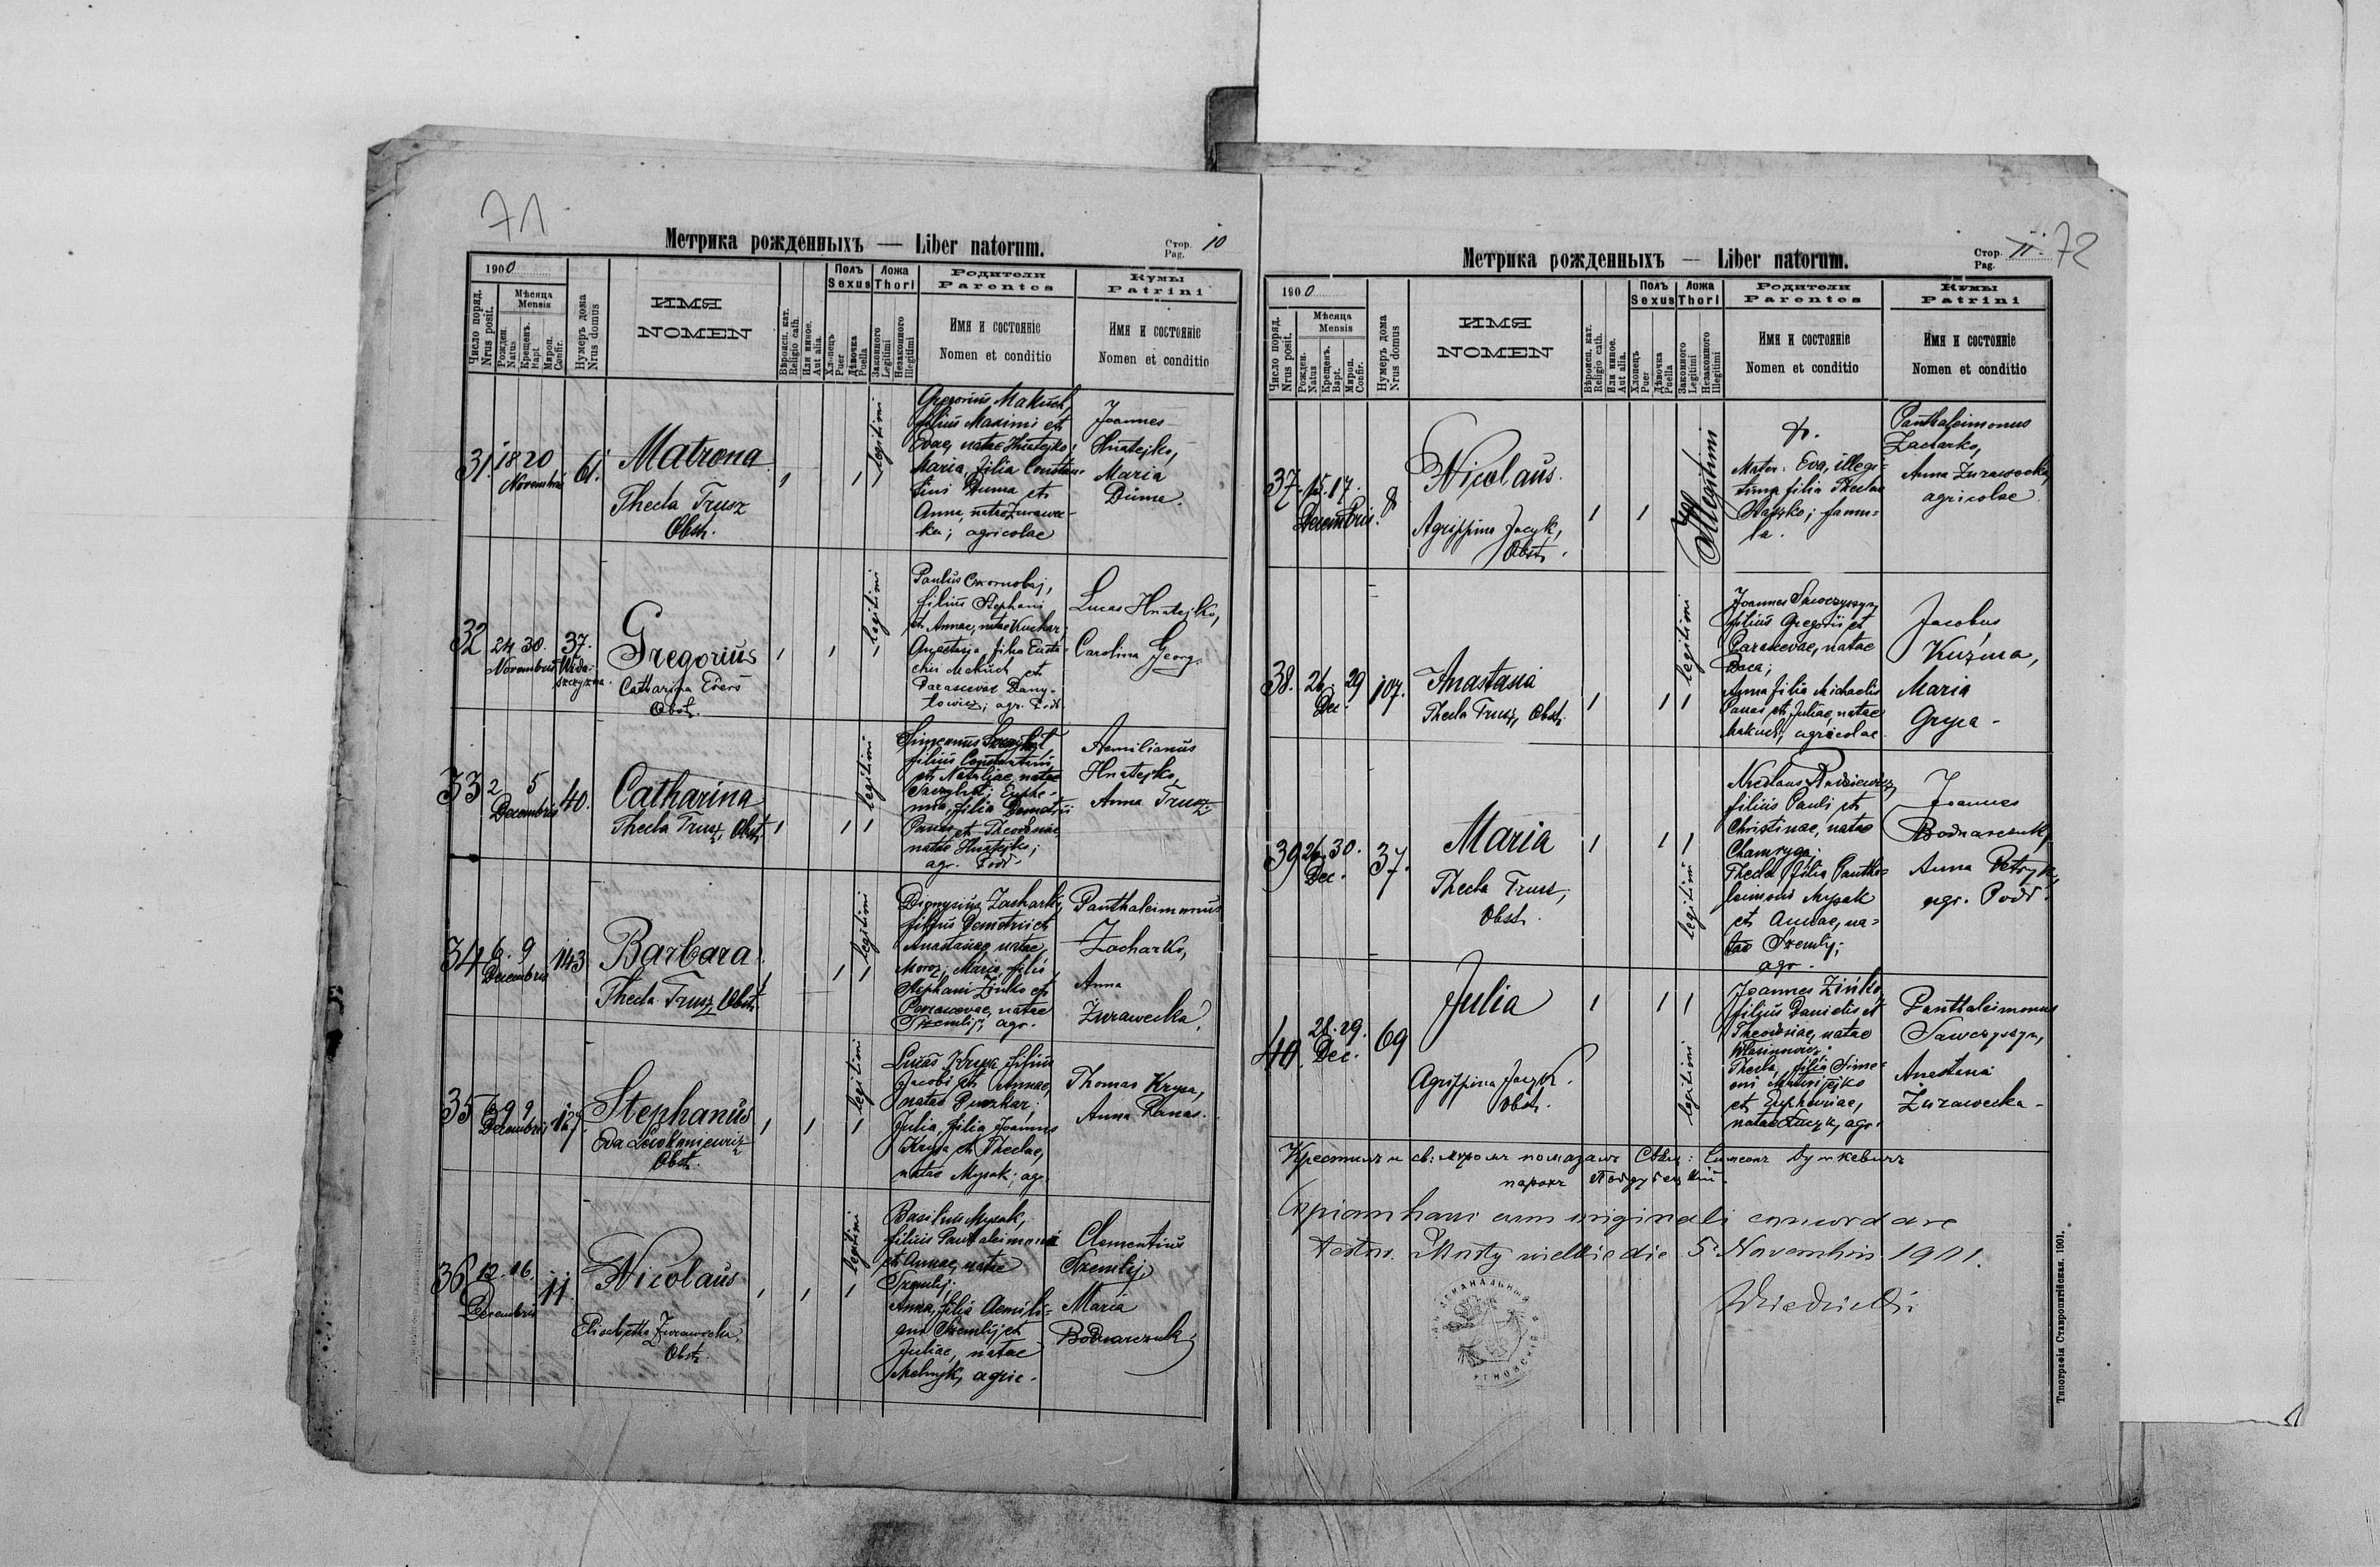 71
Метрика рожденныхъ — Liber natorum.
Стор. Pag. 10
1900
Число поряд. Nrus posit.
Мѣсяца Mensis
Рожден. Natus
Крещенъ. Bapt.
Мироп. Confir.
Нумеръ дома Nrus domus
ИМЯ
NOMEN
Вѣроисп. кат. Religio cath.
Или иное. Aut alia.
Полъ Sexus
Хлопецъ Puer
Дѣвочка Puella
Ложа Thori
Законного Legitimi
Незаконного Illegitimi
Родители
Parentes
Имя и состояніе
Nomen et conditio
Кумы
Patrini
Имя и состояніе
Nomen et conditio
31. 18 20 Novembris 61.
Matrona
Thecla Trusz
Obst.
legitimi
Gregorius Makuch,
filius Maximi et
Evae, natae Hnatejko;
Maria, filia Constan-
tini Duma et
Anna, natae Żurawec-
ka; agricolae
Joannes
Hnatejko,
Maria
Duma
32 24 30. Novembris 37.
Gregorius
Catharina
Obst.
legitimi
Paulus Czornobaj,
filius Stephani
et Annae, natae Kuchar;
Anastasia, filia Eusta-
chii Makuch et
Parascevae Dany-
lowicz; agr. Podd.
Lucas Hnatejko,
Carolina Georg.
33 2 5 Decembris 40.
Catharina
Thecla Trusz, Obst.
legitimi
filius Constantini
et Nataliae, natae
Euphe-
mia, filia Demetrii
Panas et Theodosiae
natae Hnatejko;
agr. Podd
Aemilianus
Hnatejko,
Anna Trusz
34 6. 9 Decembris 143
Barbara
Thecla Trusz, Obst.
legitimi
Dionysius Zacharko,
filius Demetrii et
Anastasiae natae
Moroz; Maria, filia
Stephani Zińko et
Parascevae, natae
Szemlij, agr.
Panthaleimonus
Zacharko,
Anna
Żurawecka
35 6 9 Decembris 127.
Stephanus
Eva Lewkoniewicz
Obst.
legitimi
Lucas Krypa filius
Jacobi et Annae,
natae Puszkar;
Julia, filia Joannis
Krypa et Theclae,
natae Mysak; agr.
Thomas Krypa,
Anna Panas.
36 12. 16. Decembris 11.
Nicolaus
Elisabetha Żurawecka
Obst.
legitimi
Basilius Mysak,
filius Panthaleimoni
et Annae, natae
Szemlij;
Anna, filia Aemili-
ani Szemlij et
Juliae, natae
Melnyk, agric.
Clementius
Szemlij
Maria
Bodnarczuk
Метрика рожденныхъ — Liber natorum.
Стор. Pag. 11. 72
1900
Число поряд. Nrus posit.
Мѣсяца Mensis
Рожден. Natus
Крещенъ. Bapt.
Мироп. Confir.
Нумеръ дома Nrus domus
ИМЯ
NOMEN
Вѣроисп. кат. Religio cath.
Или иное. Aut alia.
Полъ Sexus
Хлопецъ Puer
Дѣвочка Puella
Ложа Thori
Законного Legitimi
Незаконного Illegitimi
Родители
Parentes
Имя и состояніе
Nomen et conditio
Кумы
Patrini
Имя и состояніе
Nomen et conditio
37. 15. 17. Decembris.
Nicolaus.
Agrippina Jacyk,
Obst.
Illegitimi
Mater: Eva, illegi-
tima filia Theclae
famu-
la.
Panthaleimonus
Zacharko,
Anna Żurawecka,
agricolae
38. 26. 29 Dec. 107.
Anastasia
Thecla Trusz, Obst.
legitimi
Joannes Sawczyszyn
filius Gregorii et
Parascevae, natae
Baca;
Anna filia Michaelis
Panas et Juliae, natae
Makuch, agricolae
Jacobus
Kuźma,
Maria
Grypa -
39. 26. 30. Dec. 37.
Maria
Thecla Trusz,
Obst.
legitimi
Nicolaus
filius Pauli et
Christinae, natae
Chamryga;
Thecla filia Pantha-
leimoni Mysak
et Annae, na-
tae Szemlij;
agr.
Joannes
Bodnarczuk,
Anna Petryk,
agr. Podd.
40. 28. 29. Dec. 69
Julia
Agrippina Jacyk.
Obst.
legitimi
Joannes Zińko,
filius Danielis et
Theodosiae, natae
Thecla, filia Sime-
oni
et Euphrosinae,
natae agr.
Panthaleimonus
Sawczyszyn,
Anastasia
Żurawecka -
Крестилъ и св. муромъ помазалъ Симеонъ
парохъ
Copiam hanc cum originali concordare
testor. Mosty wielkie die 5. Novembris 1901.
Типографія Ставропигійская. 1901.